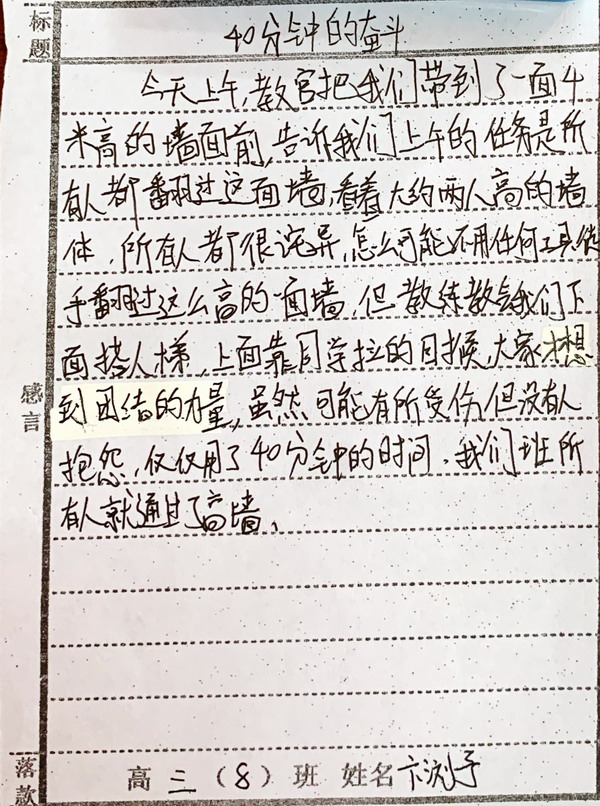 标题
40分钟的奋斗
今天上午,教官把我们带到了一面4
米高的墙面前,告诉我们上午的任务是所
有人都翻过这面墙,看着大约两人高的墙
体,所有人都很诧异,怎么可能不用任何工具徒
手翻过这么高的一面墙,但教练教给我们下
面搭人梯,上面靠同学拉的时候,大家才想
到团结的力量,虽然可能有所受伤,但没有人
抱怨,仅仅用了40分钟的时间,我们班所
有人就通过了高墙。
感言
落款
高三(8)班 姓名 卞